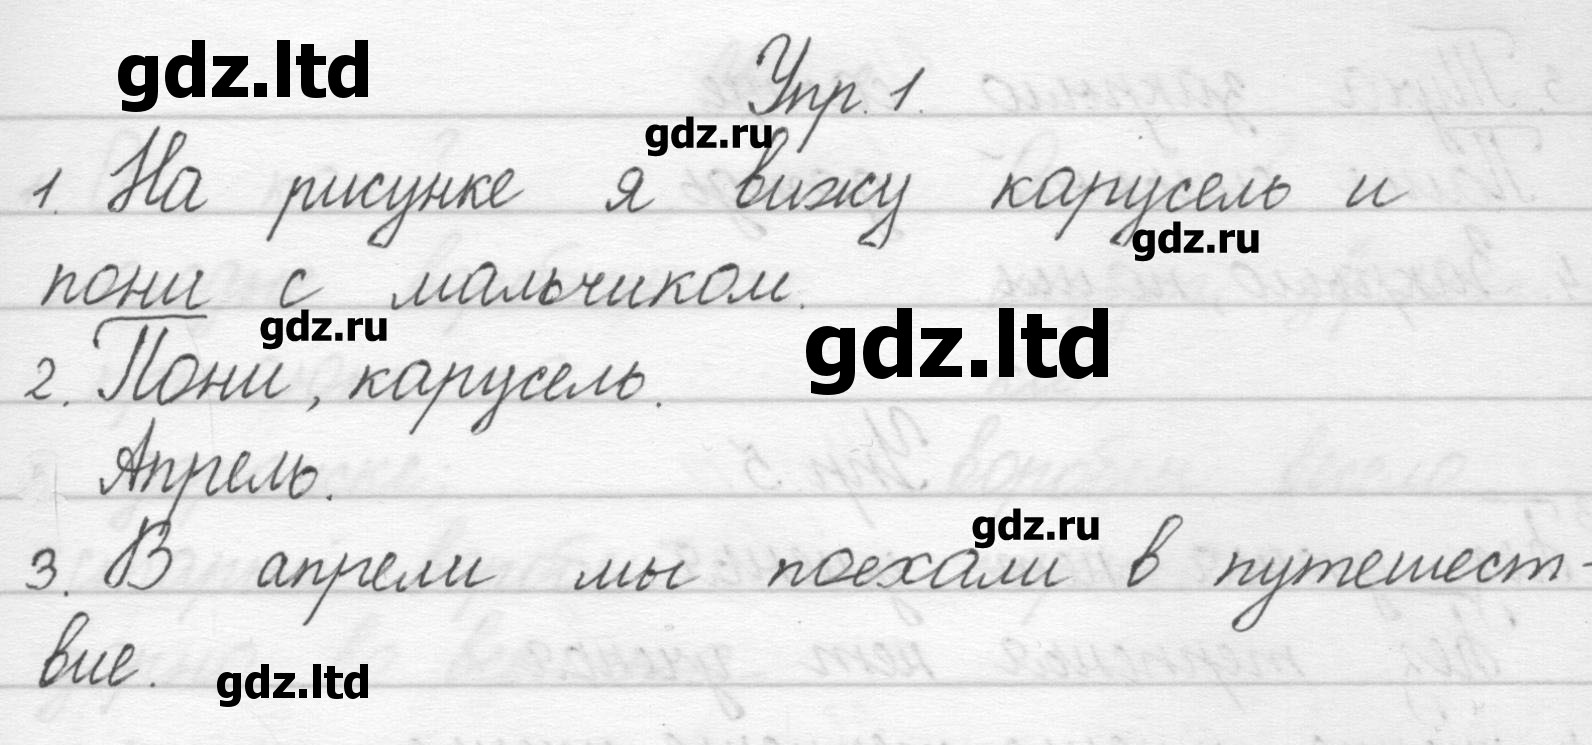 gdz.ltd
Упр. 1.
gdz.ru
1. На рисунке я вижу карусель и
gdz.ru
пони с мальчиком.
gdz.ru
gdz.ltd
2. Пони, карусель.
Апрель.
gdz.ru
3. В апрели мы поехали в путешест-
вие.
gdz.ltd